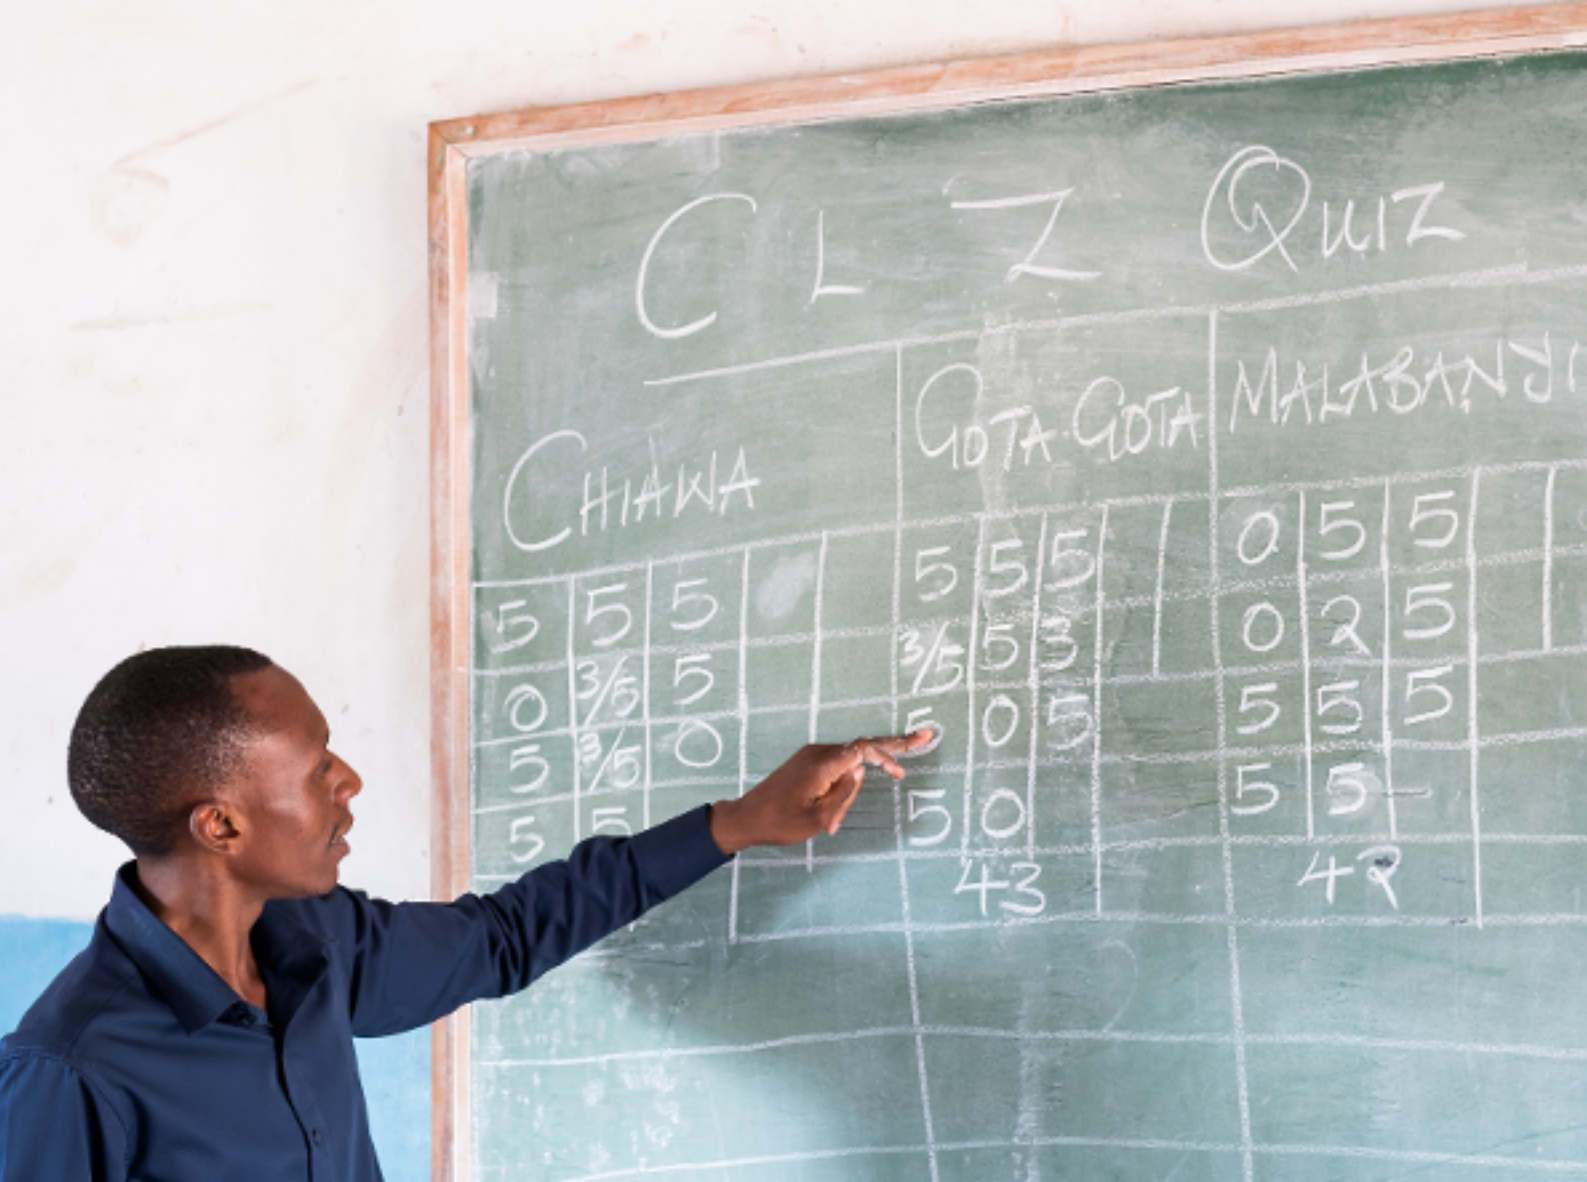 CLZ QUIZ
CHIAWA GOTA-GOTA MALABANYI
5 5 5 5 5 5 0 5 5
0 3/5 5 3/5 5 3 0 2 5
5 3/5 0 5 0 5 5 5 5
5 5 5 0 5 5 -
43 42